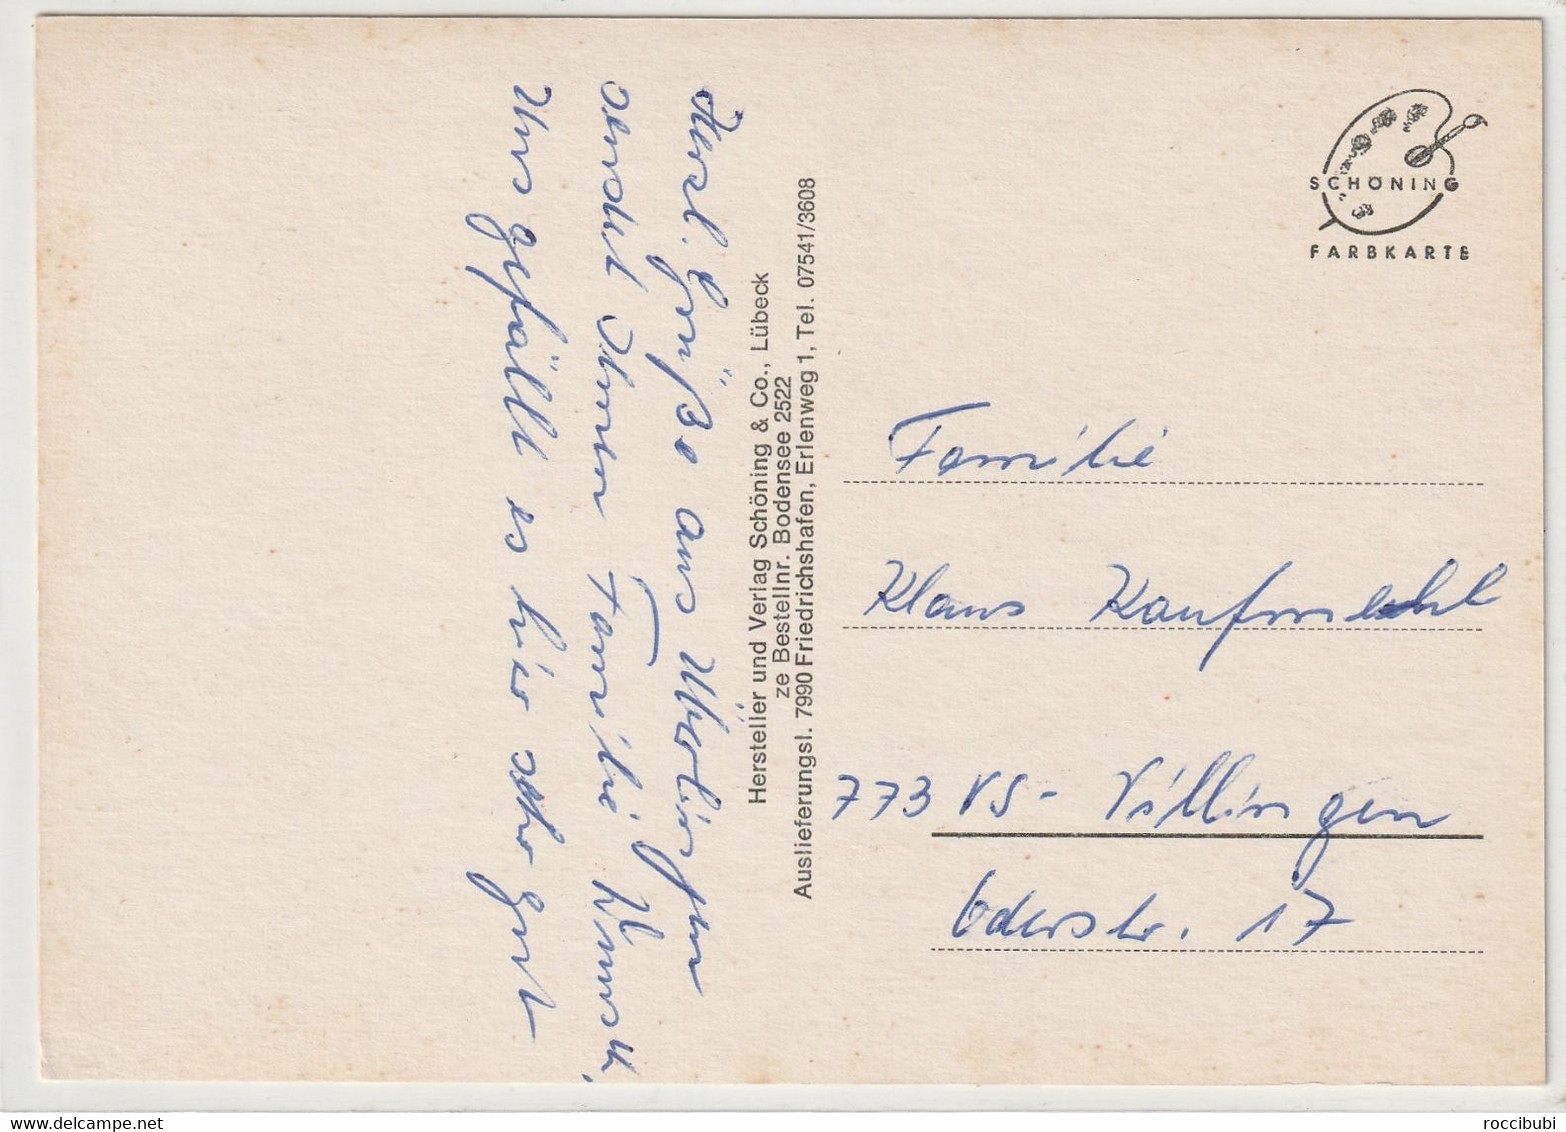 Herzl. Grüße aus Überlingen
sendet Ihnen Familie
Uns gefällt es hier sehr gut
Hersteller und Verlag Schöning & Co., Lübeck
ze Bestellnr. Bodensee 2522
Auslieferungsl. 7990 Friedrichshafen, Erlenweg 1, Tel. 07541/3608
SCHÖNING
FARBKARTE
Familie
Klaus
773 VS- Villingen
Oderstr. 17
roccibubi